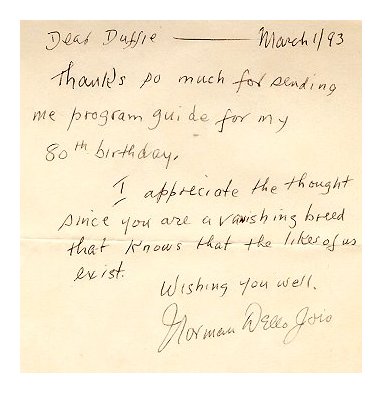 Dear Duffie — March 1/93
Thanks so much for sending
me program guide for my
80th birthday.
I appreciate the thought
since you are a vanishing breed
that knows that the likes of us
exist.
Wishing you well.
Norman Dello Joio